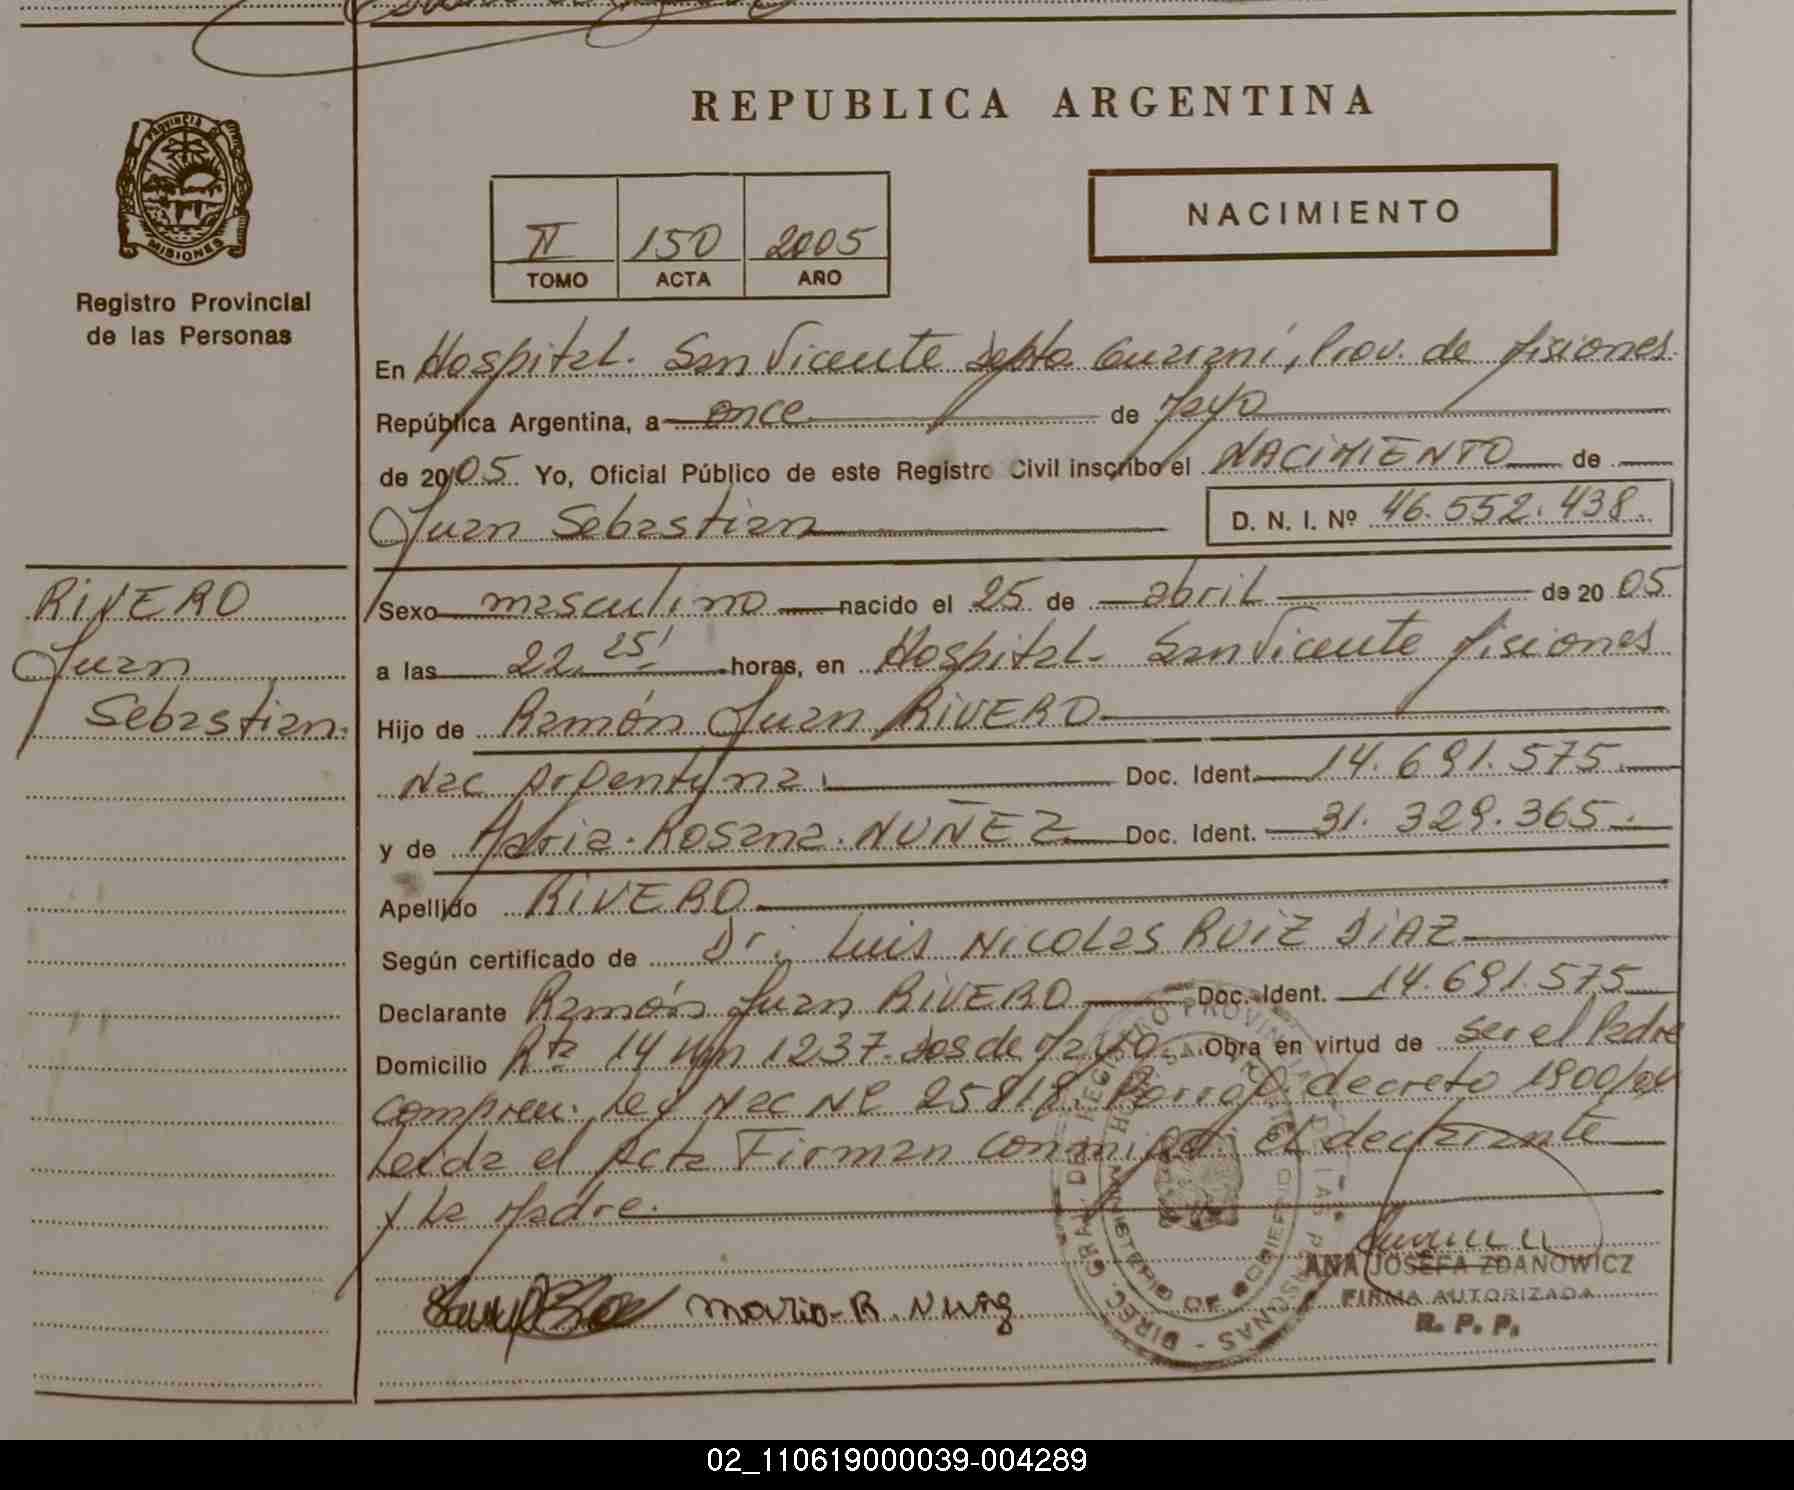 REPUBLICA ARGENTINA
PROVINCIA DE
MISIONES
Registro Provincial
de las Personas
II 150 2005
TOMO ACTA AÑO
NACIMIENTO
En Hospital. San Vicente Depto Guaraní, Prov. de Misiones.
República Argentina, a once de Mayo
de 2005. Yo, Oficial Público de este Registro Civil inscribo el NACIMIENTO de
Juan Sebastian
D. N. I. Nº 46.552.438.
RIVERO
Juan
Sebastian.
Sexo masculino nacido el 25 de abril de 20 05
a las 22. 25' horas, en Hospital. San Vicente Misiones
Hijo de Ramón Juan RIVERO
Nac Argentina. Doc. Ident. 14.691.575.
y de María. Rosana. NUÑEZ Doc. Ident. 31. 329.365.
Apellido RIVERO
Según certificado de Dr. Luis Nicolas RUIZ DIAZ
Declarante Ramón Juan RIVERO Doc. Ident. 14.691.575
Domicilio Rta 14 Km 1237. Dos de Mayo. Obra en virtud de ser el Padre
Ley Nac Nº 25818. decreto 1900/04
Leida el Acta Firman conmigo: el declarante
y La Madre.
DIREC. GRAL. DEL REGISTRO PROVINCIAL DE LAS PERSONAS
MINISTERIO DE GOBIERNO
ANA JOSEFA ZDANOWICZ
FIRMA AUTORIZADA
R. P. P.
Maria R. Nuñez
02_110619000039-004289